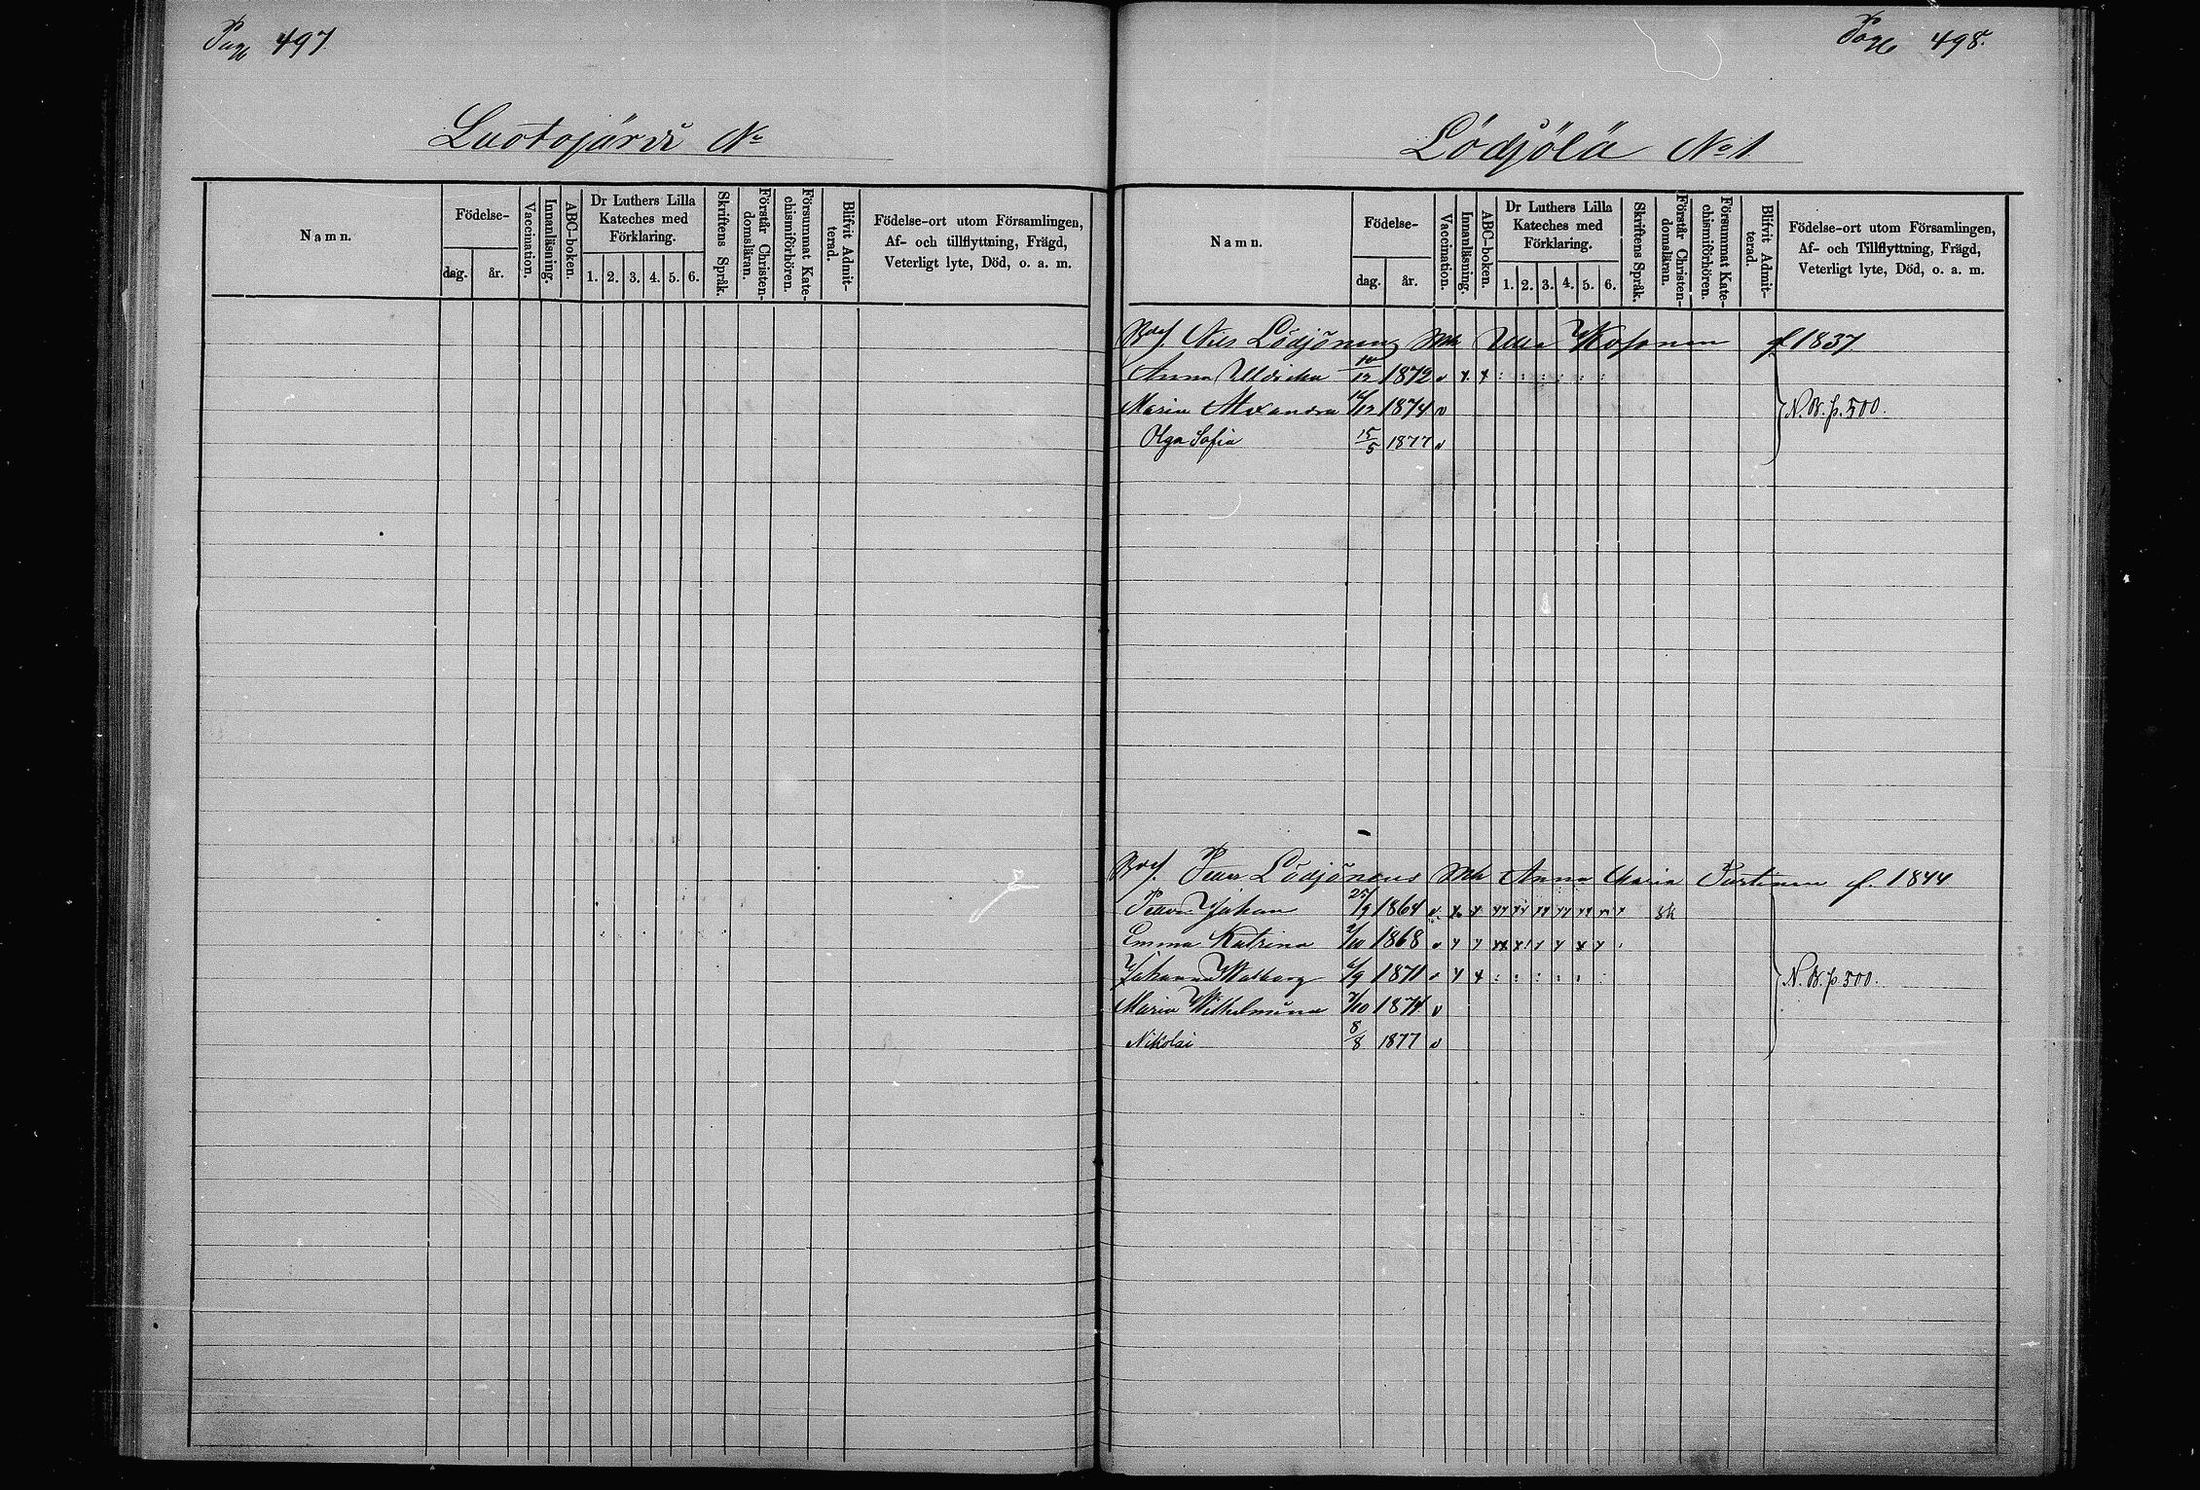 Pag 497
Luotojärvi No
Namn.
Födelse-
dag.
år.
Vaccination.
Innanläsning.
ABC-boken.
Dr Luthers Lilla
Kateches med
Förklaring.
1. 2. 3. 4. 5. 6.
Skriftens Språk.
Förstår Christen-
domsläran.
Försummat Kate-
chismiförhören.
Blifvit Admit-
terad.
Födelse-ort utom Församlingen,
Af- och tillflyttning, Frägd,
Veterligt lyte, Död, o. a. m.
Pag 498.
Lödjölä No 1
Namn.
Födelse-
dag.
år.
Vaccination.
Innanläsning.
ABC-boken.
Dr Luthers Lilla
Kateches med
Förklaring.
1. 2. 3. 4. 5. 6.
Skriftens Språk.
Förstår Christen-
domsläran.
Försummat Kate-
chismiförhören.
Blifvit Admit-
terad.
Födelse-ort utom Församlingen,
Af- och Tillflyttning, Frägd,
Veterligt lyte, Död, o. a. m.
Nils Lödjönens Ulla Kosonen f. 1837
Anna Uldrika 10/12 1872 v x x : : : : : :
Maria Alexandra 14/12 1874 v N. B. p. 500.
Olga Sofia 15/5 1877 v
Petter Lödjönens Anna Maria Purtinen f. 1844
Petter Johan 27/9 1864 v
Emma Katrina 2/10 1868 v
Johanna Walborg 6/9 1871 N. B. p 500.
Maria Wilhelmina 7/10 1874 v
Nikolai 8/8 1877 v